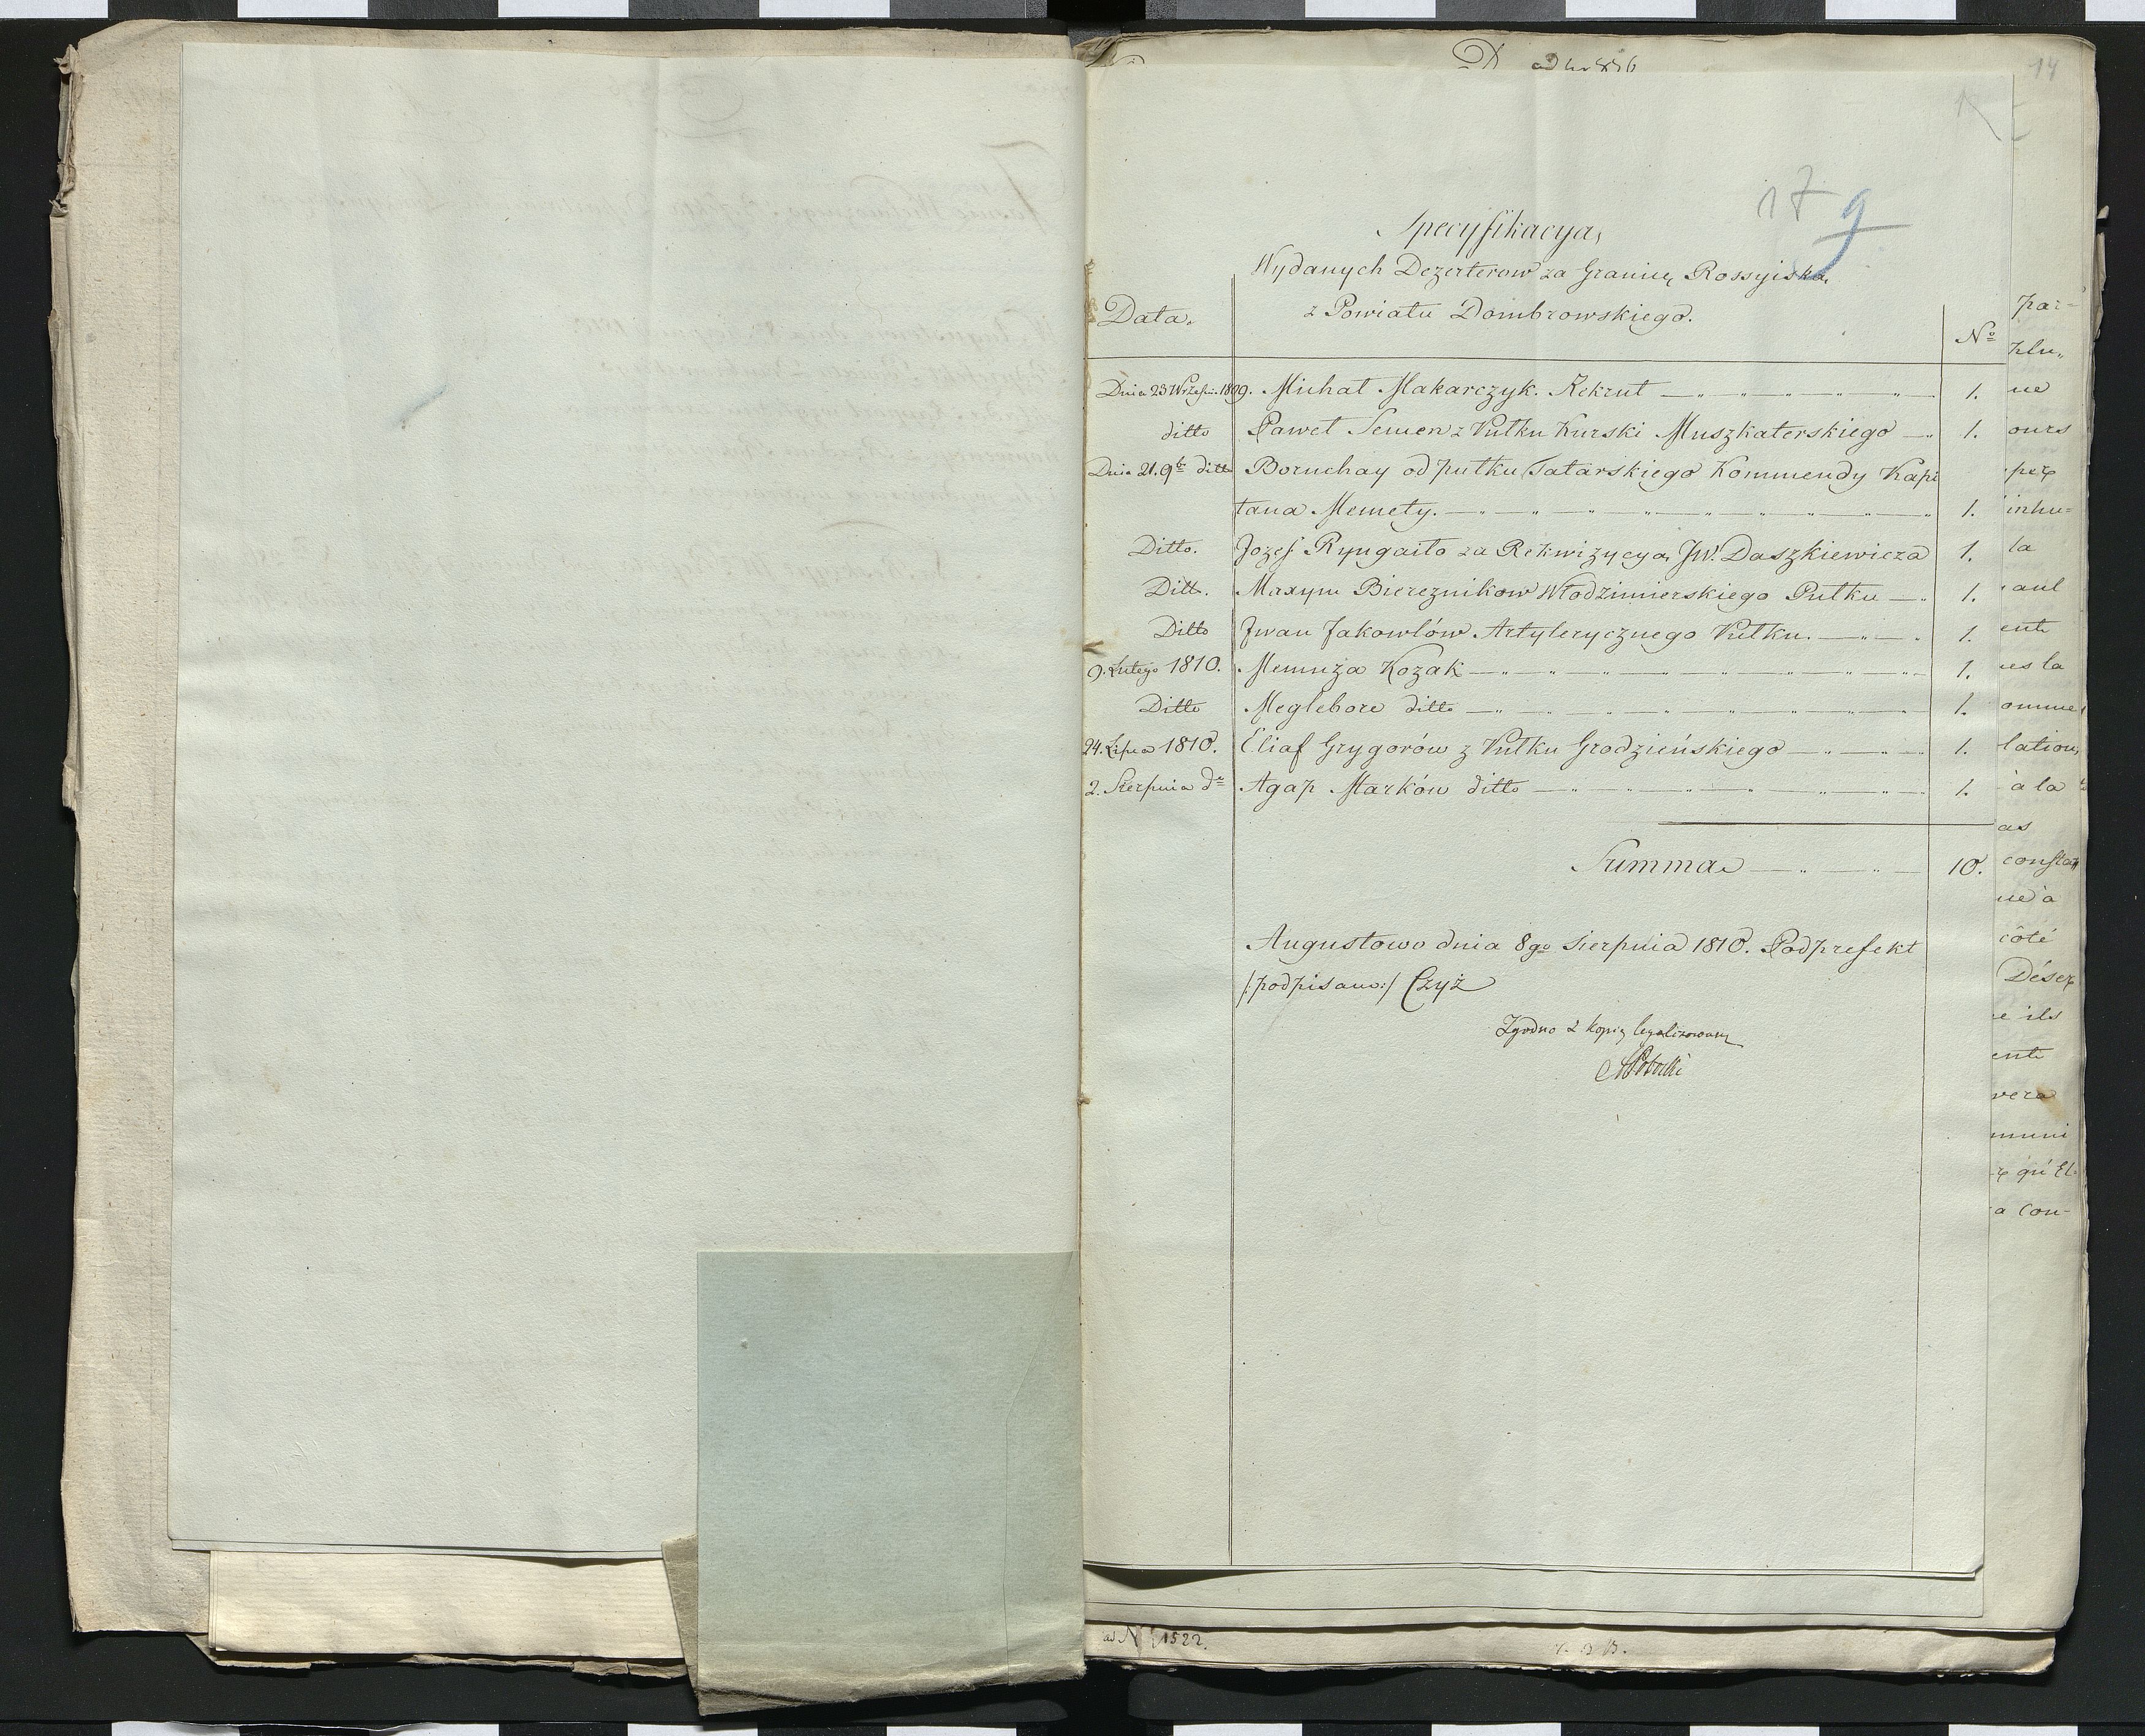 14
17 9
Specyfikacya
Wydanych Dezerterow za Granicę Rossyiską
z Powiatu Dombrowskiego.
Data.
No
Dnia 23 Wrześn. 1809. Michał Makarczyk. Rekrut 1.
ditto Paweł Semen z Pułku Kurski Muszkaterskiego 1.
Dnia 21. 9br ditto Boruchay od pułku Tatarskiego Kommendy Kapi
tana Memety. 1.
Ditto. Jozef Ryngaito za Rekwizycyą JW. Daszkiewicza 1.
Ditto. Maxym Biereznikow Włodzimierskiego Pułku 1.
Ditto Jwan Jakowlów Artylerycznego Pułku. 1.
9. Lutego 1810. Memnża Kozak 1.
Ditto Meglebore ditto 1.
24. Lipca 1810. Eliaf Grygorów z Pułku Grodzieńskiego 1.
2. Sierpnia do Agap Marków ditto 1.
Summa 10.
Augustowo dnia 8go Sierpnia 1810. Podprefekt
/:podpisano:/ Czyż
Zgodno z kopią legalizowaną
APotocki
par=
ue
ours
per
inhu=
la
aul
ent
ues la
omme
lation,
à la
as
consta
ue à
côté
Déser
e ils
ente
vera
muni
r qu'El=
a con-
ad No 1522.